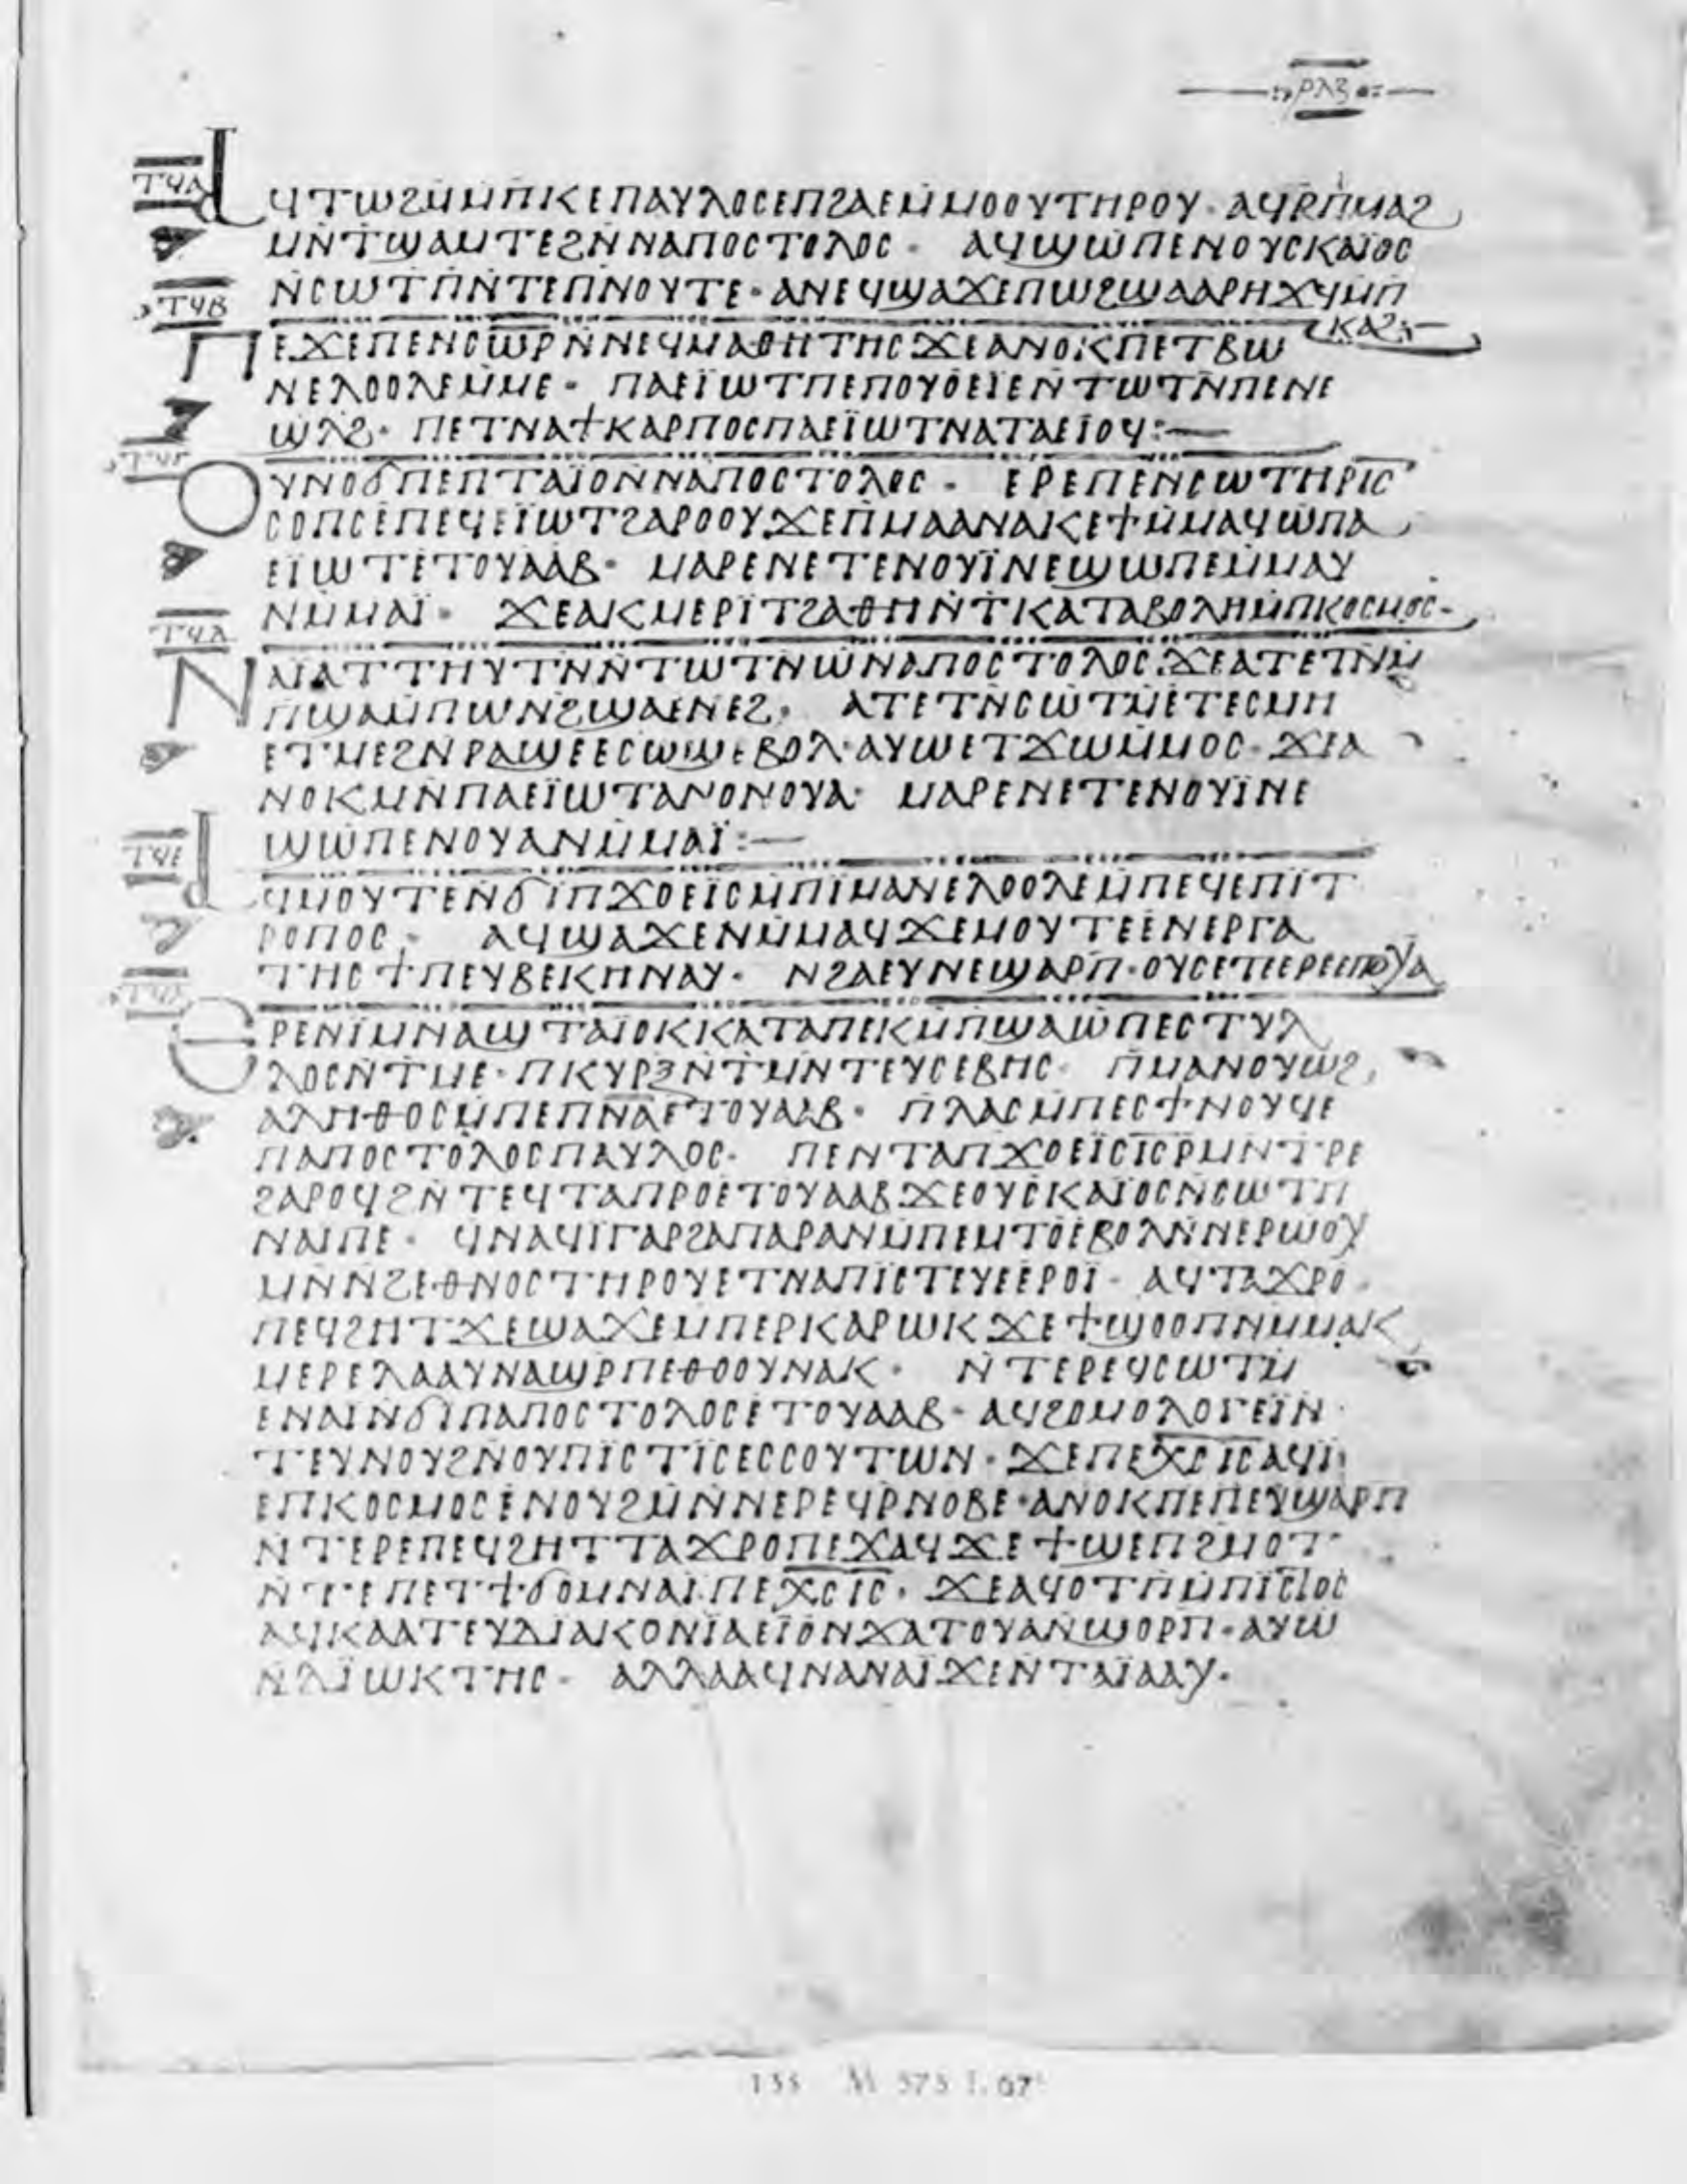 ⲣⲗⲍ
ⲧϥⲁ
ⲁϥⲧⲱϩⲙ̄ⲙ̄ⲡⲕⲉⲡⲁⲩⲗⲟⲥⲉⲡϩⲁⲉⲙ̄ⲙⲟⲟⲩⲧⲏⲣⲟⲩ · ⲁϥⲣ̄ⲡⲙⲁϩ
ⲙⲛ̄ⲧϣⲁⲙⲧⲉϩⲛ̄ⲛⲁⲡⲟⲥⲧⲟⲗⲟⲥ · ⲁϥϣⲱⲡⲉⲛⲟⲩⲥⲕⲁⲓ̈ⲟⲥ
ⲛ̄ⲥⲱⲧⲡ̄ⲛ̄ⲧⲉⲡⲛⲟⲩⲧⲉ · ⲁⲛⲉϥϣⲁϫⲉⲡⲱϩϣⲁⲁⲣⲏϫϥ̄ⲙ̄ⲡ
ⲕⲁϩ:—
ⲧϥⲃ
ⲡⲉϫⲉⲡⲉⲛⲥⲱ̄ⲣ̄ⲛ̄ⲛⲉϥⲙⲁⲑⲏⲧⲏⲥϫⲉⲁⲛⲟⲕⲡⲉⲧⲃⲱ
ⲛⲉⲗⲟⲟⲗⲉⲙ̄ⲙⲉ · ⲡⲁⲉⲓ̈ⲱⲧⲡⲉⲡⲟⲩⲟ̄ⲉⲓⲉⲛ̄ⲧⲱⲧⲛ̄ⲡⲉⲛⲉ
ϣⲗϩ · ⲡⲉⲧⲛⲁϯⲕⲁⲣⲡⲟⲥⲡⲁⲉⲓ̈ⲱⲧⲛⲁⲧⲁⲉⲓⲟϥ:—
ⲧϥⲅ
ⲟⲩⲛⲟϭⲡⲉⲡⲧⲁⲓ̈ⲟⲛ̄ⲛⲁⲡⲟⲥⲧⲟⲗⲟⲥ · ⲉⲣⲉⲡⲉⲛⲥⲱⲧⲏⲣⲓ̄ⲥ̄
ⲥⲟⲡⲥⲉ̄ⲡⲉϥⲉⲓ̈ⲱⲧϩⲁⲣⲟⲟⲩϫⲉⲡⲙⲁⲁⲛⲁⲕⲉϯⲙ̄ⲙⲁϥⲱ̄ⲡⲁ
ⲉⲓ̈ⲱⲧⲉ̄ⲧⲟⲩⲁⲁⲃ · ⲙⲁⲣⲉⲛⲉⲧⲉⲛⲟⲩⲓ̈ⲛⲉϣⲱⲡⲉⲙ̄ⲙⲁⲩ
ⲛⲙ̄ⲙⲁⲓ̈ · ϫⲉⲁⲕⲙⲉⲣⲓ̈ⲧϩⲁⲑⲏⲛ̄ⲧⲕⲁⲧⲁⲃⲟⲗⲏⲙ̄ⲡⲕⲟⲥⲙⲟⲥ-
ⲧϥⲇ
ⲛⲁⲓ̈ⲁⲧⲧⲏⲩⲧⲛ̄ⲛ̄ⲧⲱⲧⲛ̄ⲱ̄ⲛⲁⲡⲟⲥⲧⲟⲗⲟⲥ·ϫⲉⲁⲧⲉⲧⲛ̄ⲙ̄
ⲡϣⲁⲙ̄ⲡⲱⲛϩ̄ϣⲁⲉⲛⲉϩ · ⲁⲧⲉⲧⲛ̄ⲥⲱⲧⲙ̄ⲉⲧⲉⲥⲙⲏ
ⲉⲧⲙⲉϩⲛ̄ⲣⲁϣⲉⲉⲥⲱϣⲉⲃⲟⲗ·ⲁⲩⲱⲉⲧϫⲱⲙ̄ⲙⲟⲥ · ϫⲉⲁ
ⲛⲟⲕⲙⲛ̄ⲡⲁⲉⲓ̈ⲱⲧⲁⲛⲟⲛⲟⲩⲁ · ⲙⲁⲣⲉⲛⲉⲧⲉⲛⲟⲩⲓ̈ⲛⲉ
ϣⲱⲡⲉⲛⲟⲩⲁⲛⲙ̄ⲙⲁⲓ̈:—
ⲧϥⲉ
ⲁϥⲙⲟⲩⲧⲉⲛ̄ϭⲓ̈ⲡϫⲟⲉⲓⲥⲙ̄ⲡⲓ̈ⲙⲁⲛⲉⲗⲟⲟⲗⲉⲙ̄ⲡⲉϥⲉⲡⲓ̈ⲧ
ⲣⲟⲡⲟⲥ · ⲁϥϣⲁϫⲉⲛⲙ̄ⲙⲁϥϫⲉⲙⲟⲩⲧⲉⲉ̄ⲛⲉⲣⲅⲁ
ⲧⲏⲥϯⲡⲉⲩⲃⲉⲕⲏⲛⲁⲩ · ⲛϩⲁⲉⲩⲛⲉϣⲁⲣⲡ̄·ⲟⲩⲥⲉⲧⲉⲉⲣⲉⲉⲡⲟⲩⲁ
ⲉⲣⲉⲛⲓ̈ⲙⲛⲁϣⲧⲁⲓ̈ⲟⲕⲕⲁⲧⲁⲡⲉⲕⲙ̄ⲡϣⲁⲱ̄ⲡⲉⲥⲧⲩⲗ
ⲗⲟⲥⲛ̄ⲧⲙⲉ · ⲡⲕⲩⲣⲝ̄ⲛ̄ⲧⲙⲛ̄ⲧⲉⲩⲥⲉⲃⲏⲥ · ⲡⲙⲁⲛⲟⲩⲱϩ
ⲁⲗⲏⲑⲟⲥⲙ̄ⲡⲉⲡⲛ̄ⲁ̄ⲉⲧⲟⲩⲁⲁⲃ · ⲡⲗⲁⲥⲙ̄ⲡⲉⲥϯⲛⲟⲩϥⲉ
ⲡⲁⲡⲟⲥⲧⲟⲗⲟⲥⲡⲁⲩⲗⲟⲥ · ⲡⲉⲛⲧⲁⲡϫⲟⲉⲓ̈ⲥⲓ̄ⲥ̄ⲣ̄ⲙⲛ̄ⲧⲣⲉ
ϩⲁⲣⲟϥϩⲛ̄ⲧⲉϥⲧⲁⲡⲣⲟⲉ̄ⲧⲟⲩⲁⲁⲃϫⲉⲟⲩⲥⲕⲁⲓ̈ⲟⲥⲛ̄ⲥⲱⲧⲡ
ⲛⲁⲓ̈ⲡⲉ · ϥⲛⲁϥⲓ̈ⲅⲁⲣϩⲁⲡⲁⲣⲁⲛⲙ̄ⲡⲉⲙⲧⲟⲉ̄ⲃⲟⲗⲛ̄ⲛⲉⲣⲣⲱⲟⲩ
ⲙⲛ̄ⲛ̄ϩⲉⲑⲛⲟⲥⲧⲏⲣⲟⲩⲉⲧⲛⲁⲡⲓ̈ⲥⲧⲉⲩⲉⲉ̄ⲣⲟⲓ̈ · ⲁϥⲧⲁϫⲣⲟ
ⲡⲉϥϩⲏⲧϫⲉϣⲁϫⲉⲙⲡⲉⲣⲕⲁⲣⲱⲕϫⲉϯϣⲟⲟⲡⲛⲙ̄ⲙⲁⲕ
ⲙⲉⲣⲉⲗⲁⲁⲩⲛⲁϣⲣ̄ⲡⲉⲑⲟⲟⲩⲛⲁⲕ · ⲛ̄ⲧⲉⲣⲉϥⲥⲱⲧⲙ̄
ⲉⲛⲁⲓ̈ⲛ̄ϭⲓ̈ⲡⲁⲡⲟⲥⲧⲟⲗⲟⲥⲉ̄ⲧⲟⲩⲁⲁⲃ · ⲁϥϩⲟⲙⲟⲗⲟⲅⲉⲓ̈ⲛ̄
ⲧⲉⲩⲛⲟⲩϩⲛ̄ⲟⲩⲡⲓ̈ⲥⲧⲓ̈ⲥⲉⲥⲥⲟⲩⲧⲱⲛ · ϫⲉⲡⲉⲭ̄ⲥ̄ⲓ̄ⲥ̄ⲁϥⲓ̈
ⲉⲡⲕⲟⲥⲙⲟⲥⲉ̄ⲛⲟⲩϩⲙ̄ⲛ̄ⲛⲉⲣⲉϥⲣ̄ⲛⲟⲃⲉ·ⲁⲛⲟⲕⲡⲉⲡⲉⲩϣⲁⲣⲡ
ⲛ̄ⲧⲉⲣⲉⲡⲉϥϩⲏⲧⲧⲁϫⲣⲟⲡⲉϫⲁϥϫⲉϯϣⲉⲡϩⲙⲟⲧ
ⲛ̄ⲧⲉⲡⲉⲧϯϭⲟⲙⲛⲁⲓ̈·ⲡⲉⲭ̄ⲥ̄ⲓ̄ⲥ̄ · ϫⲉⲁϥⲟⲡⲧ̄ⲙ̄ⲡⲓⲥⲧⲟⲥ
ⲁϥⲕⲁⲁⲧⲉⲩⲇⲓⲁⲕⲟⲛⲓ̈ⲁⲉⲓ̈ⲟ̄ⲛϫⲁⲧⲟⲩⲁⲛ̄ϣⲟⲣⲡ̄·ⲁⲩⲱ
ⲛ̄ⲇⲓ̈ⲱⲕⲧⲏⲥ · ⲁⲗⲗⲁⲁϥⲛⲁⲛⲁⲓ̈ϫⲉⲛ̄ⲧⲁⲓ̈ⲁⲁⲩ·
135 M 575 f. 67